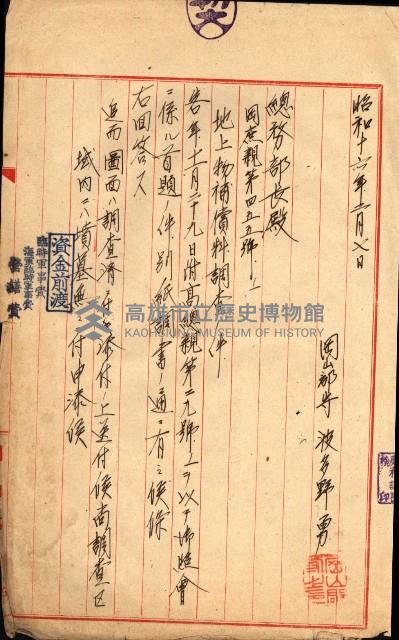 昭和十六年二月七日
岡山郡守 波多野勇
總務部長殿
岡庶親第四五五號ノ一
地上物補償料調査ノ件
客年十二月二十九日附高總親第二九號ノ一ヲ以テ御照會
ニ係ル首題ノ件別紙調書ノ通ニ有之候條
右回答ス
追而圖面ハ調査濟ニ付添付ノ上送付候尚調査區
域內ニハ墳墓無 付申添候
資金前渡
臨時軍事費
海軍臨時軍事費
營繕費
高雄市立歷史博物館
KAOHSIUNG MUSEUM OF HISTORY